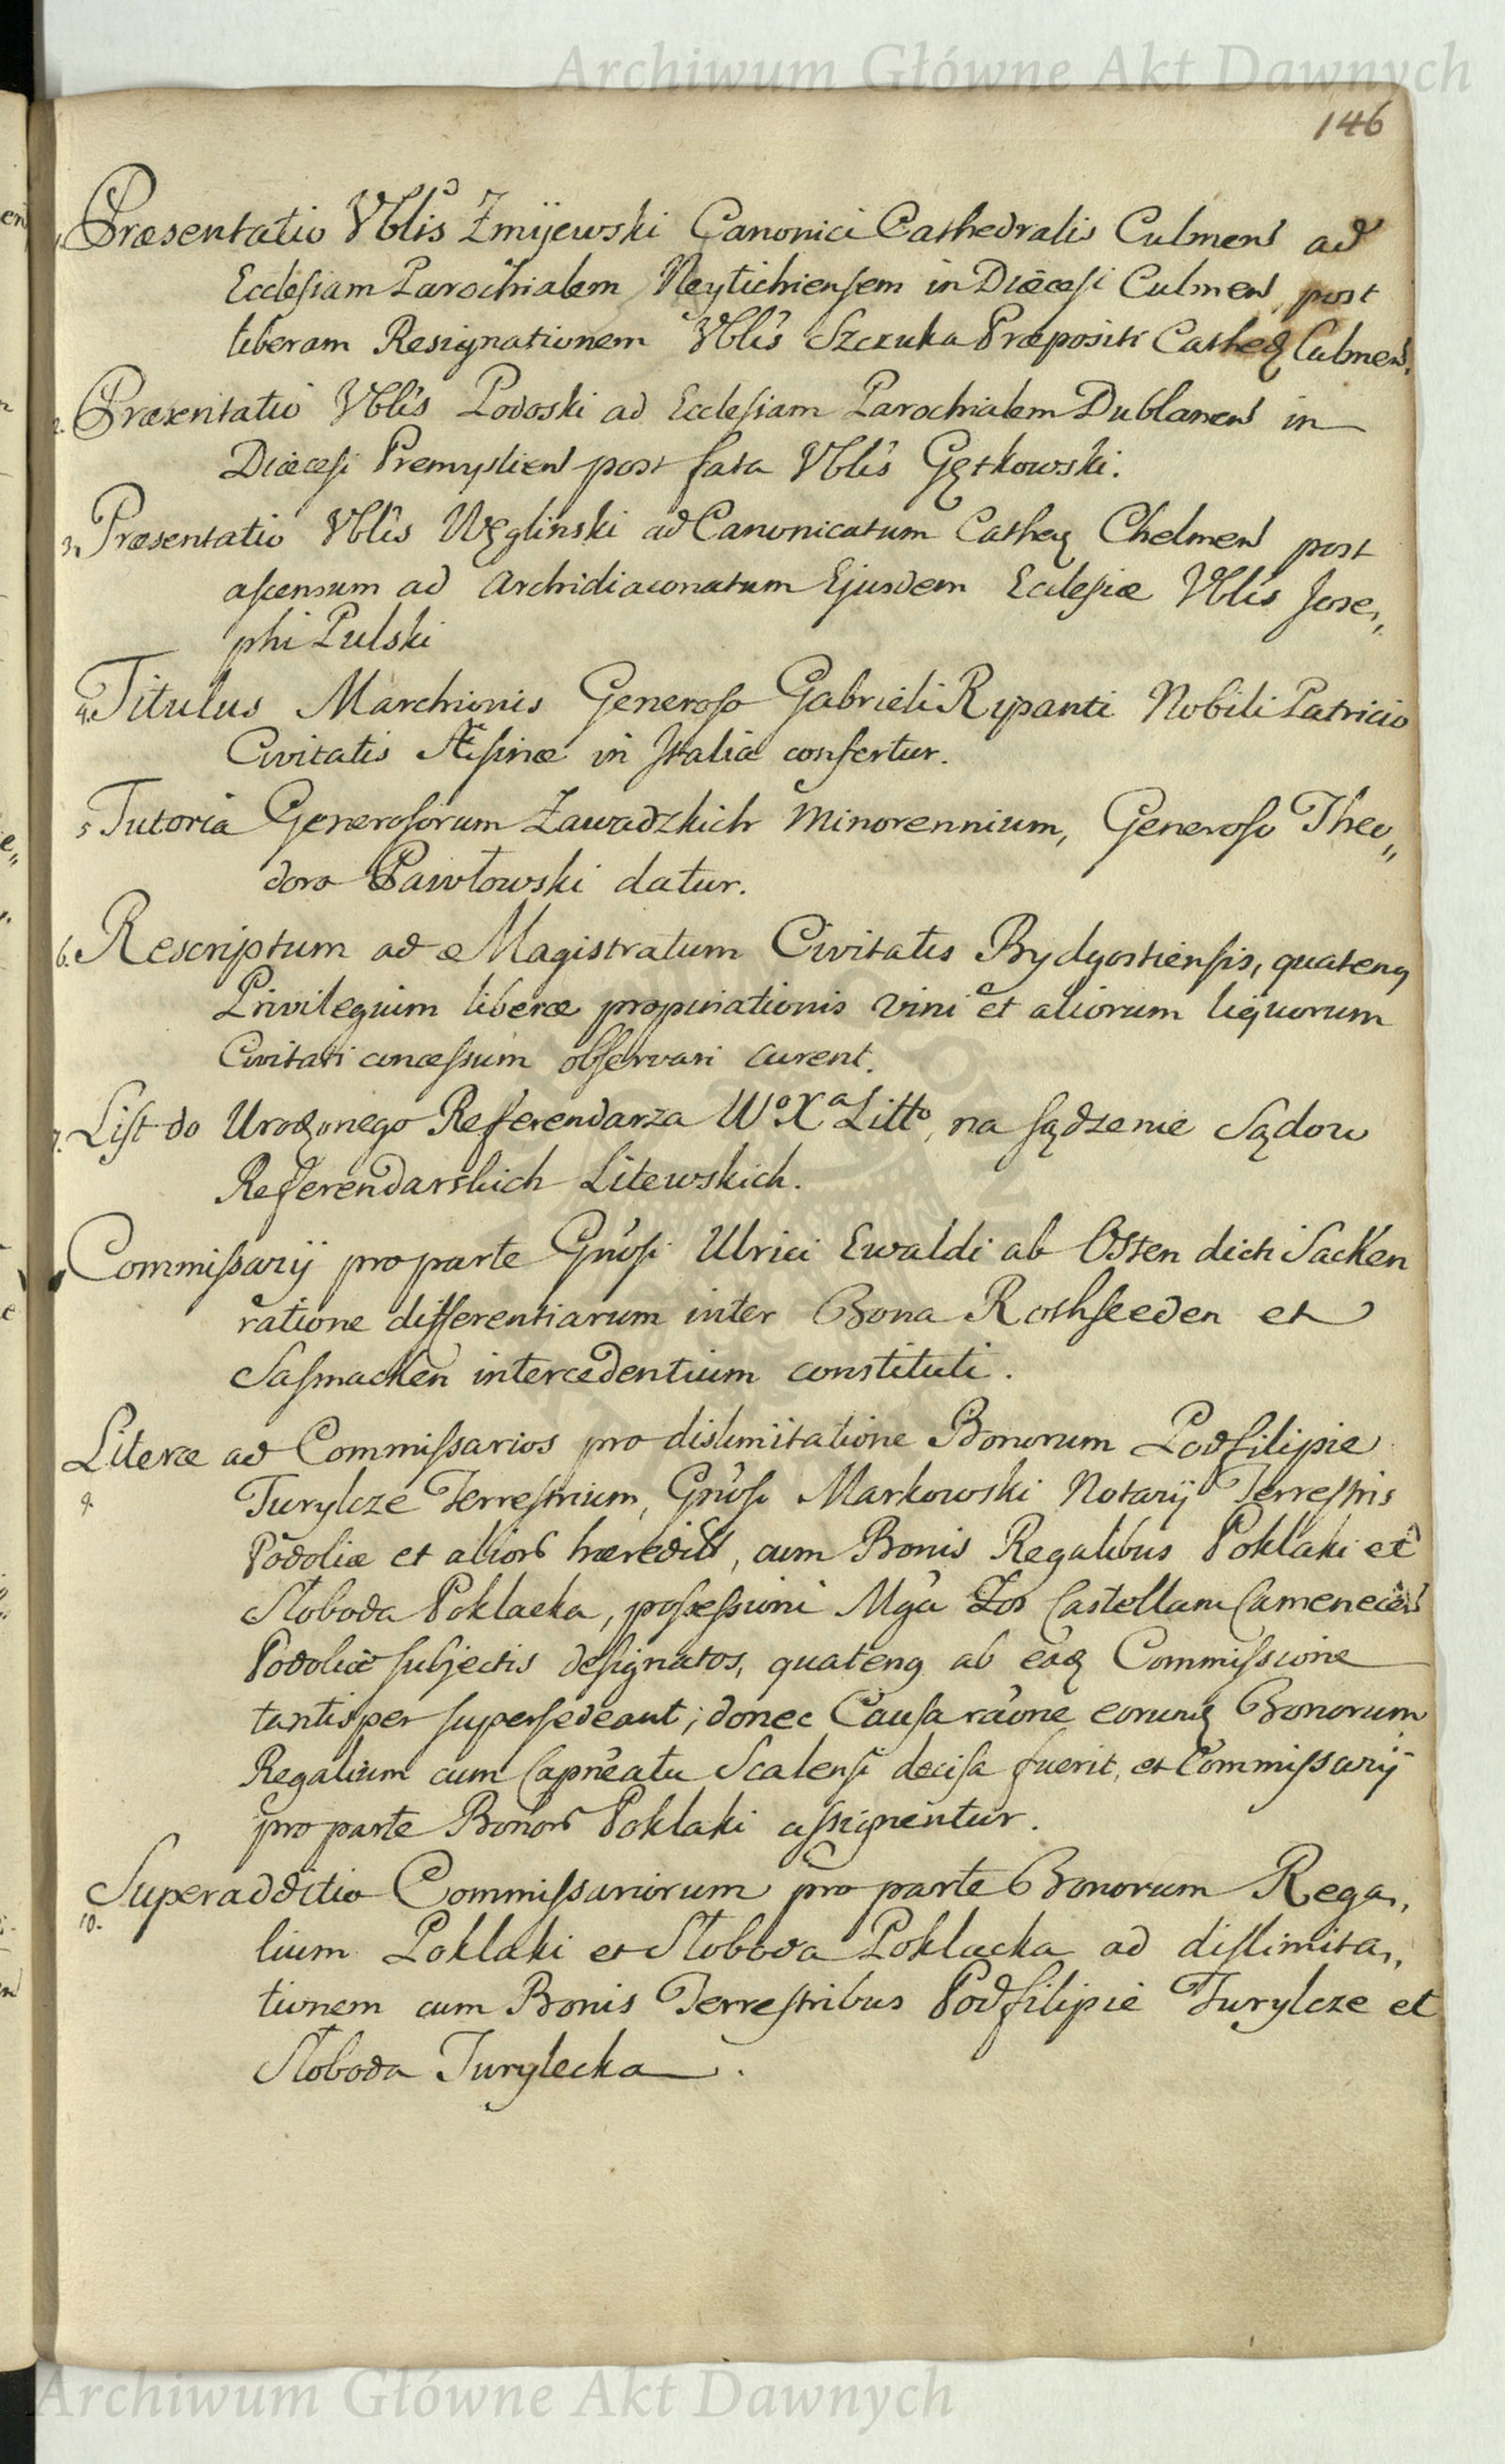 Archiwum Główne Akt Dawnych
146
1. Præsentatio Vblis Zmijewski Canonici Cathedralis Culmens ad
Ecclesiam Parochialem Neytichiensem in Diæcesi Culmens post
liberam Resignationem Vblis Szczuka Præpositi Cathed Culmens.
2. Præsentatio Vblis Podoski ad Ecclesiam Parochialem Dublanens in
Diæcesi Premysliens post fata Vblis Gętkowski.
3. Præsentatio Vblis Węglinski ad Canonicatum Cathed Chelmens post
ascensum ad Archidiaconatum Ejusdem Ecclesiæ Vblis Jose„
phi Pulski
4. Titulus Marchionis Generoso Gabrieli Ripanti Nobili Patricio
Civitatis Æsinæ in Italia confertur.
5 Tutoria Generosorum Zawadzkich Minorennium, Generoso Theo„
doro Pawłowski datur.
6. Rescriptum ad Magistratum Civitatis Bydgostiensis, quateng
Privilegium liberæ propinationis vini et aliorum liquorum
Civitati concessum observari curent.
7. List do Urodzonego Referendarza Wo Xa Litto, na sądzenie Sądow
Referendarskich Litewskich.
Commissarij pro parte Gnosi Ulrici Ewaldi ab Osten dicti Sacken
ratione differentiarum inter Bona Rothseeden et
Sasmacken intercedentium constituti.
Literæ ad Commissarios pro dislimitatione Bonorum Podfilipie
9. Turylcze Terrestrium, Gnosi Markowski Notarij Terrestris
Podoliæ et alior hæredit, cum Bonis Regalibus Poklaki et
Słoboda Poklacka, possessioni Mgci Zos Castellani Camenecens
Podoliæ subjectis designatos, quateng ab ead Commissione
tantisper supersedeant; donec Causa raone eorund Bonorum
Regalium cum Capneatu Scalensi decisa fuerit, et Commissarij
pro parte Bonor Poklaki assignentur.
Superadditio Commissariorum pro parte Bonorum Rega„
10. lium Poklaki et Słoboda Poklacka ad dislimita„
tionem cum Bonis Terrestribus Podfilipie Turylcze et
Słoboda Turylecka.
Archiwum Główne Akt Dawnych